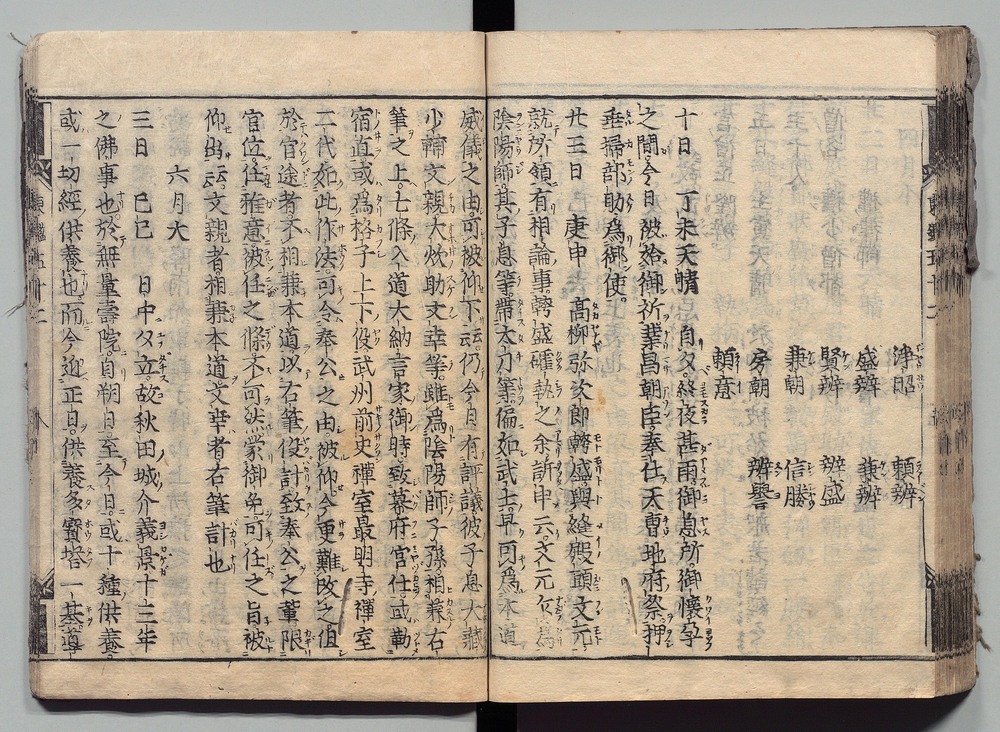 淨昭 頼辨
盛辨 兼辨
賢辨 辨盛
兼朝 信勝
房朝 辨譽
頼意
十日 丁未天晴 自夕終夜甚雨御息所御懷孕
之間今日被始御祈業昌朝臣奉仕天曹地府祭押
垂掃部助為御使
廿三日 庚申 高柳弥次郎幹盛與縫殿頭文元
就所領有相論事幹盛確執之余訴申云文元爲
陰陽師其子息等帶太刀等偏如武士早可為本道
威儀之由可被仰下云仍今日有評議彼子息大藏
少輔文親大炊助文幸等雖爲陰陽師子孫相兼右
筆之上七條入道大納言家御時致幕府宮仕或勤
宿道或爲格子上下役武州前史禪室最明寺禪室
二代如此作法可令奉公之由被仰今更難改之但
於官途者不相兼本道以右筆役計致奉公之輩限
官位任雅意被任之條不可然蒙御免可任之旨被
仰出云文親者相兼本道文幸者右筆計也
六月大
三日 己巳 日中夕立故秋田城介義景十三年
之佛事也於無量壽院自朔日至今日或十種供養
或一切經供養也而今迎正日供養多寳塔一基導